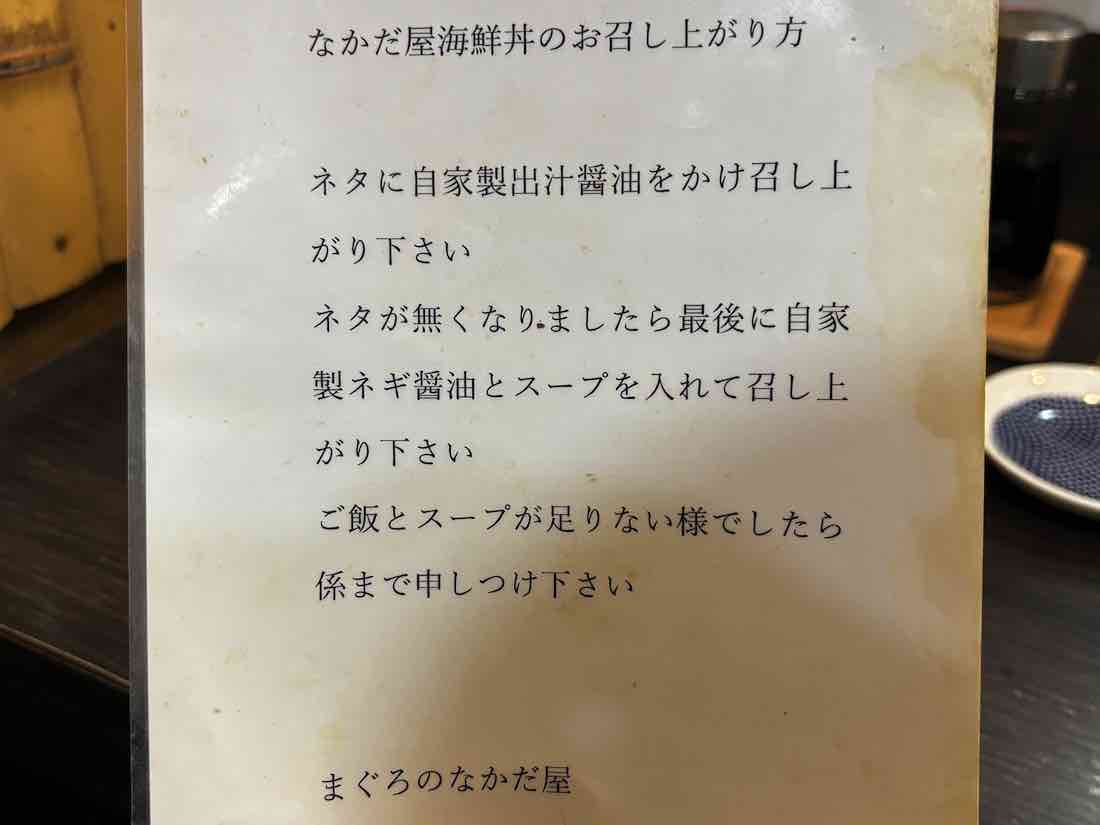 なかだ屋海鮮丼のお召し上がり方
ネタに自家製出汁醤油をかけ召し上
がり下さい
ネタが無くなりましたら最後に自家
製ネギ醤油とスープを入れて召し上
がり下さい
ご飯とスープが足りない様でしたら
係まで申しつけ下さい
まぐろのなかだ屋